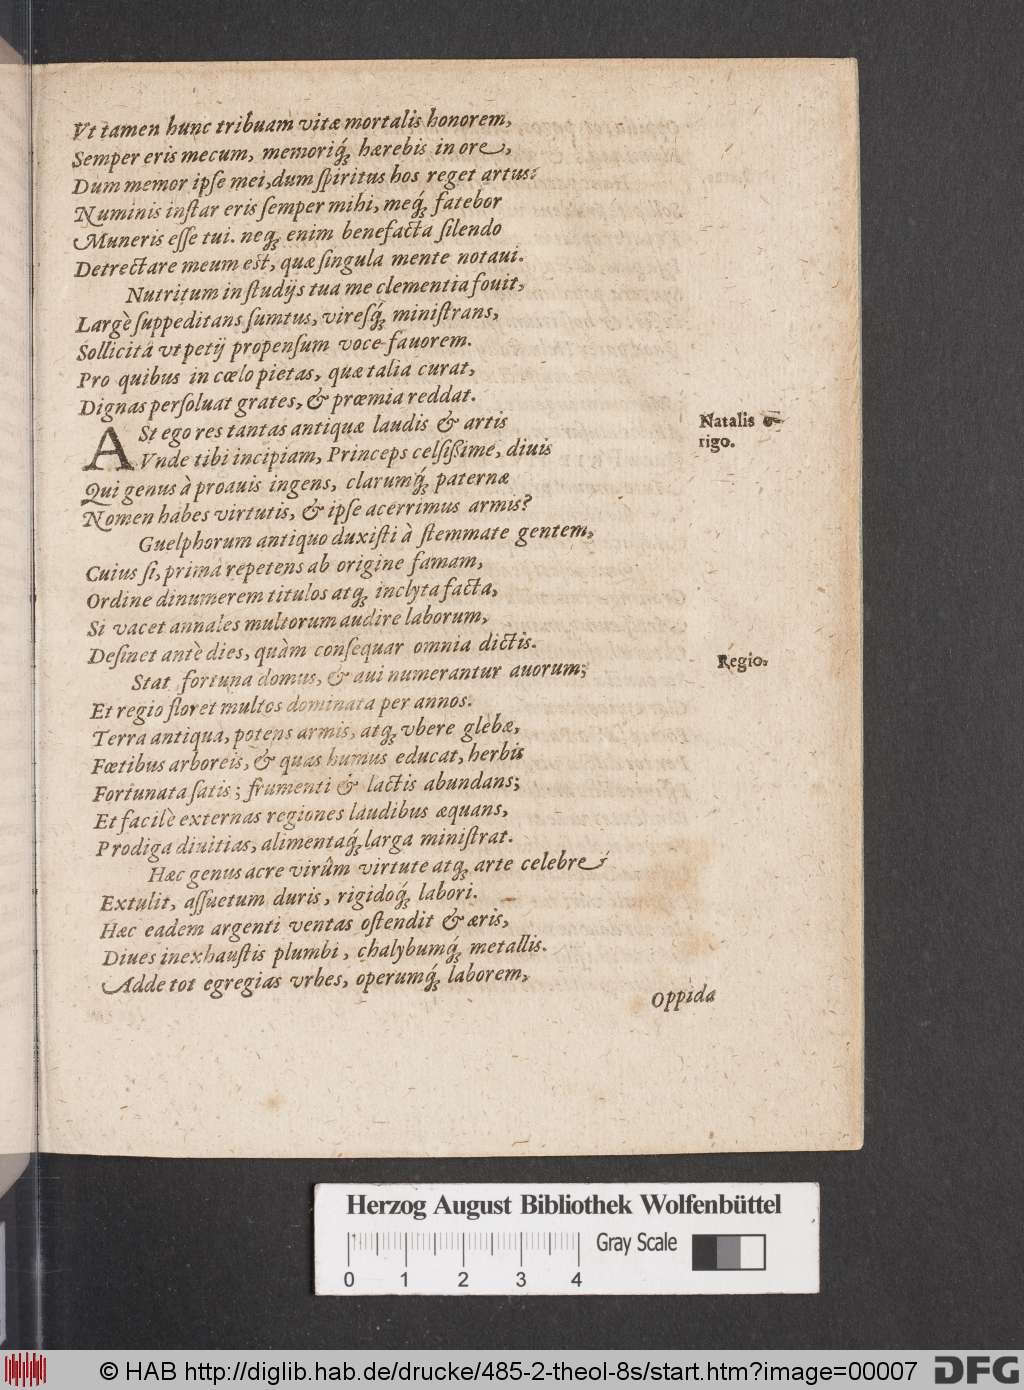 Vt tamen hunc tribuam vitæ mortalis honorem,
Semper eris mecum, memoriq́; hærebis in ore,
Dum memor ipſe mei, dum ſpiritus hos reget artus:
Numinis inſtar eris ſemper mihi, meq́; fatebor
Muneris eſſe tui. neq; enim benefacta ſilendo
Detrectare meum est, quæ ſingula mente notaui.
Nutritum in ſtudijs tua me clementia fouit,
Largè ſuppeditans ſumtus, viresq́; miniſtrans,
Sollicitâ vt petij propenſum voce fauorem.
Pro quibus in cœlo pietas, quæ talia curat,
Dignas perſoluat grates, & præmia reddat.
ASt ego res tantas antiquæ laudis & artis
Vnde tibi incipiam, Princeps celſiſſime, diuis
Natalis o-
rigo.
Qui genus à proauis ingens, clarumq́; paternæ
Nomen habes virtutis, & ipſe acerrimus armis?
Guelphorum antiquo duxiſti à ſtemmate gentem,
Cuius ſi, primâ repetens ab origine famam,
Ordine dinumerem titulos atq; inclyta facta,
Si vacet annales multorum audire laborum,
Deſinet antè dies, quàm conſequar omnia dictis.
Stat fortuna domus, & aui numerantur auorum;
Regio.
Et regio floret multos dominata per annos.
Terra antiqua, potens armis, atq; vbere glebæ,
Fœtibus arboreis, & quas humus educat, herbis
Fortunata ſatis; frumenti & lactis abundans;
Et facilè externas regiones laudibus æquans,
Prodiga diuitias, alimentaq́; larga miniſtrat.
Hæc genus acre virûm virtute atq; arte celebre
Extulit, aſſuetum duris, rigidoq́; labori.
Hæc eadem argenti ventas oſtendit & æris,
Diues inexhauſtis plumbi, chalybumq́; metallis.
Adde tot egregias vrbes, operumq́; laborem,
Oppida
Herzog August Bibliothek Wolfenbüttel
Gray Scale
0 1 2 3 4
© HAB http://diglib.hab.de/drucke/485-2-theol-8s/start.htm?image=00007 DFG